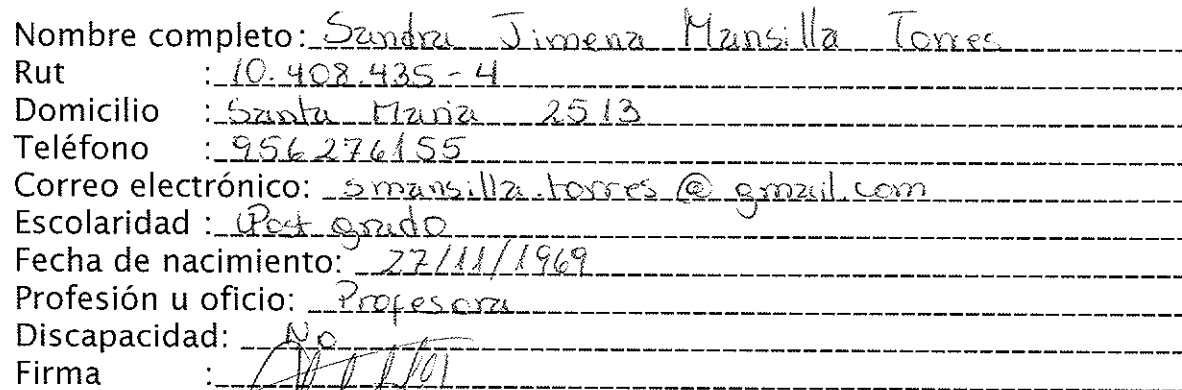 Nombre completo: Sandra Jimena Mansilla Torres
Rut : 10.408.435-4
Domicilio : Santa Maria 2513
Teléfono : 956276155
Correo electrónico: smansilla.torres@gmail.com
Escolaridad : Post grado
Fecha de nacimiento: 27/11/1969
Profesión u oficio: Profesora
Discapacidad: No
Firma :